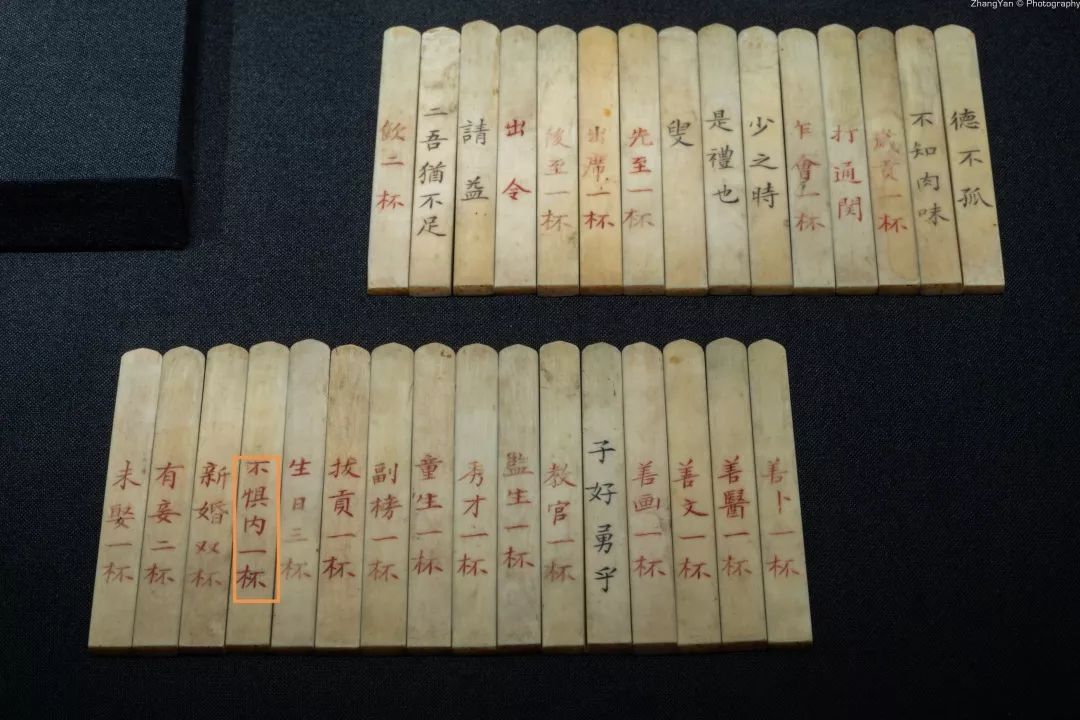 ZhangYan © Photography
德不孤
不知肉味
歲貢一杯
打通関
乍會一杯
少之時
是禮也
叟
先至一杯
出席一杯
後至一杯
出令
請益
二吾猶不足
飲二杯
善卜一杯
善醫一杯
善文一杯
善画一杯
子好勇乎
教官一杯
監生一杯
秀才一杯
童生一杯
副榜一杯
拔貢一杯
生日三杯
不惧内一杯
新婚双杯
有妾二杯
未娶一杯